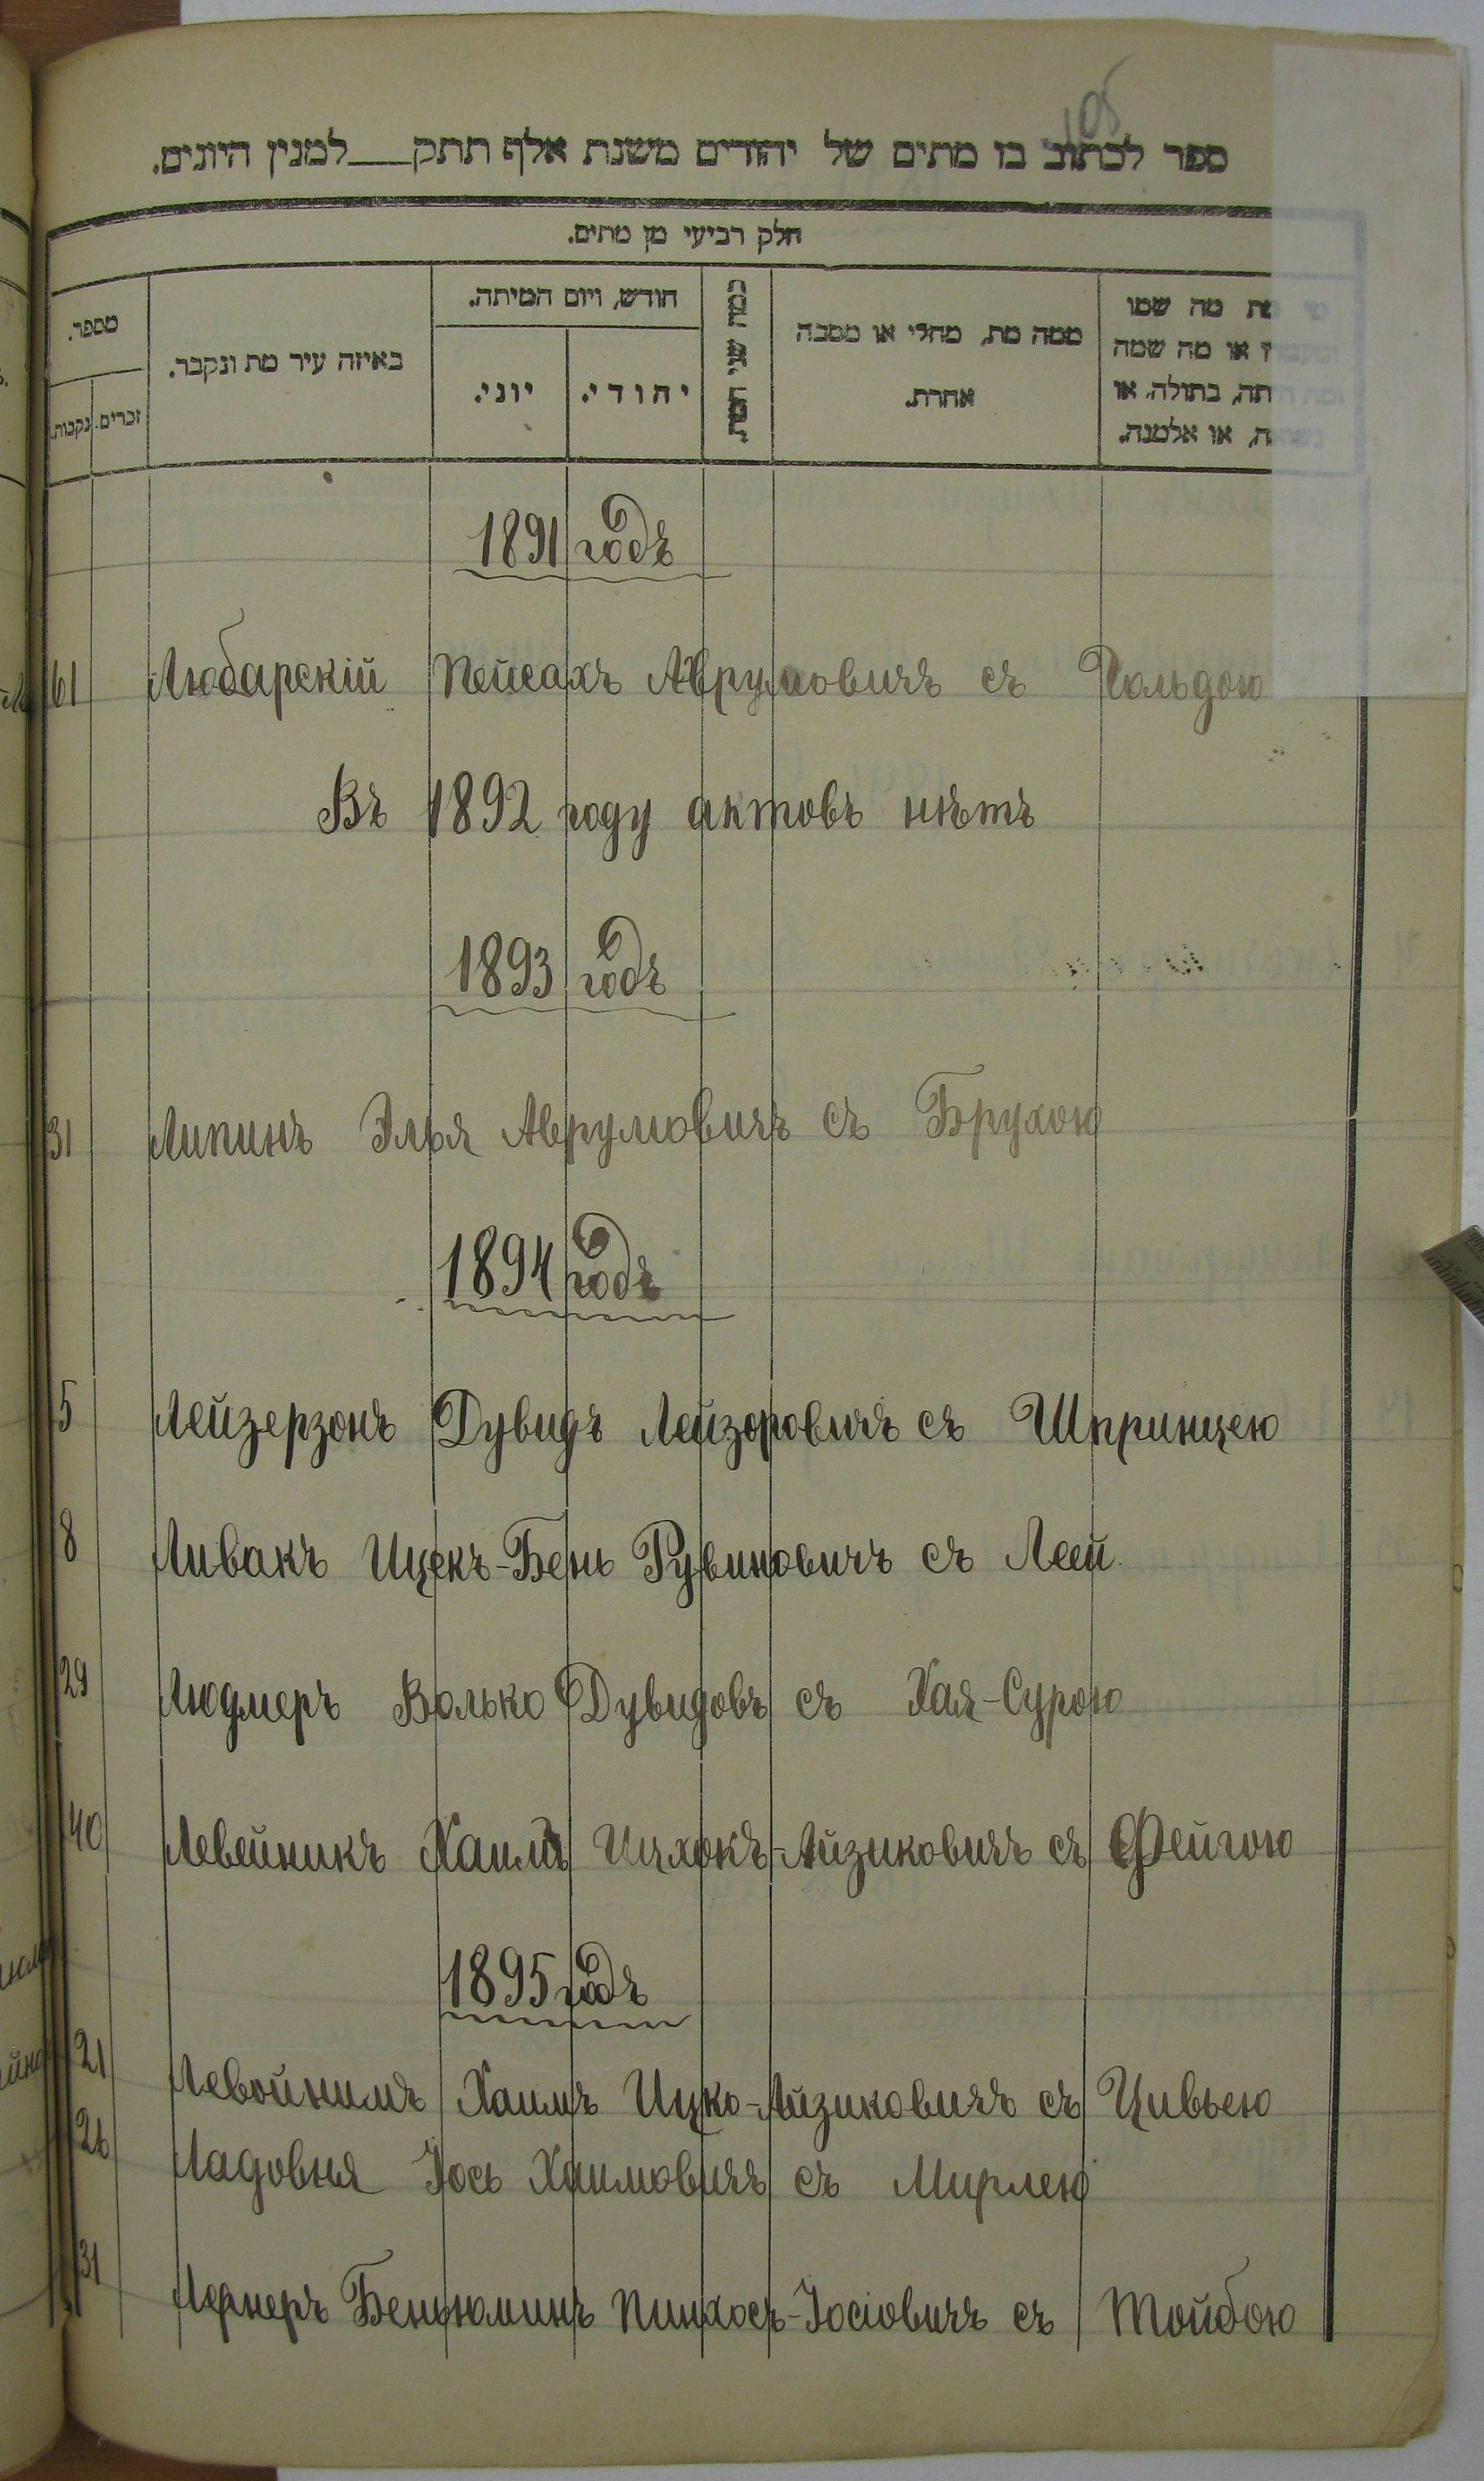 ספר לכתוב בו מתים של יהודים משנת אלף תתק___למנין היונים.
חלק רביעי מן מתים.
מספר.
זכרים. נקבות.
באיזה עיר מת ונקבר.
חודש, ויום המיתה.
יהודי. יוני.
כמה שני המת.
ממה מת, מחלי או מסבה
אחרת.
מת מה שמו
או מה שמה
בתולה, או
או אלמנה.
1891 годъ
61 Любарскій Пейсахъ Аврумовичъ съ Гольдою
Въ 1892 году актовъ нѣтъ
1893 годъ
31 Липинъ Элья Аврумовичъ съ Брухою
1894 годъ
5 Лейзерзонъ Дувидъ Лейзоровичъ съ Шпринцею
8 Ливакъ Ицекъ-Бень Рувиновичъ съ Леей
29 Людмеръ Волько Дувидовъ съ Хая-Сурою
40 Левейникъ Хаимъ Ицхокъ-Айзиковичъ съ Фейгою
1895 годъ
21 Хаимъ Ицко-Айзиковичъ съ Цивьею
26 Ладовня Іось Хаимовичъ съ Мирлею
31 Лернеръ Беньюминъ Пинхосъ-Іосіовичъ съ Тойбою